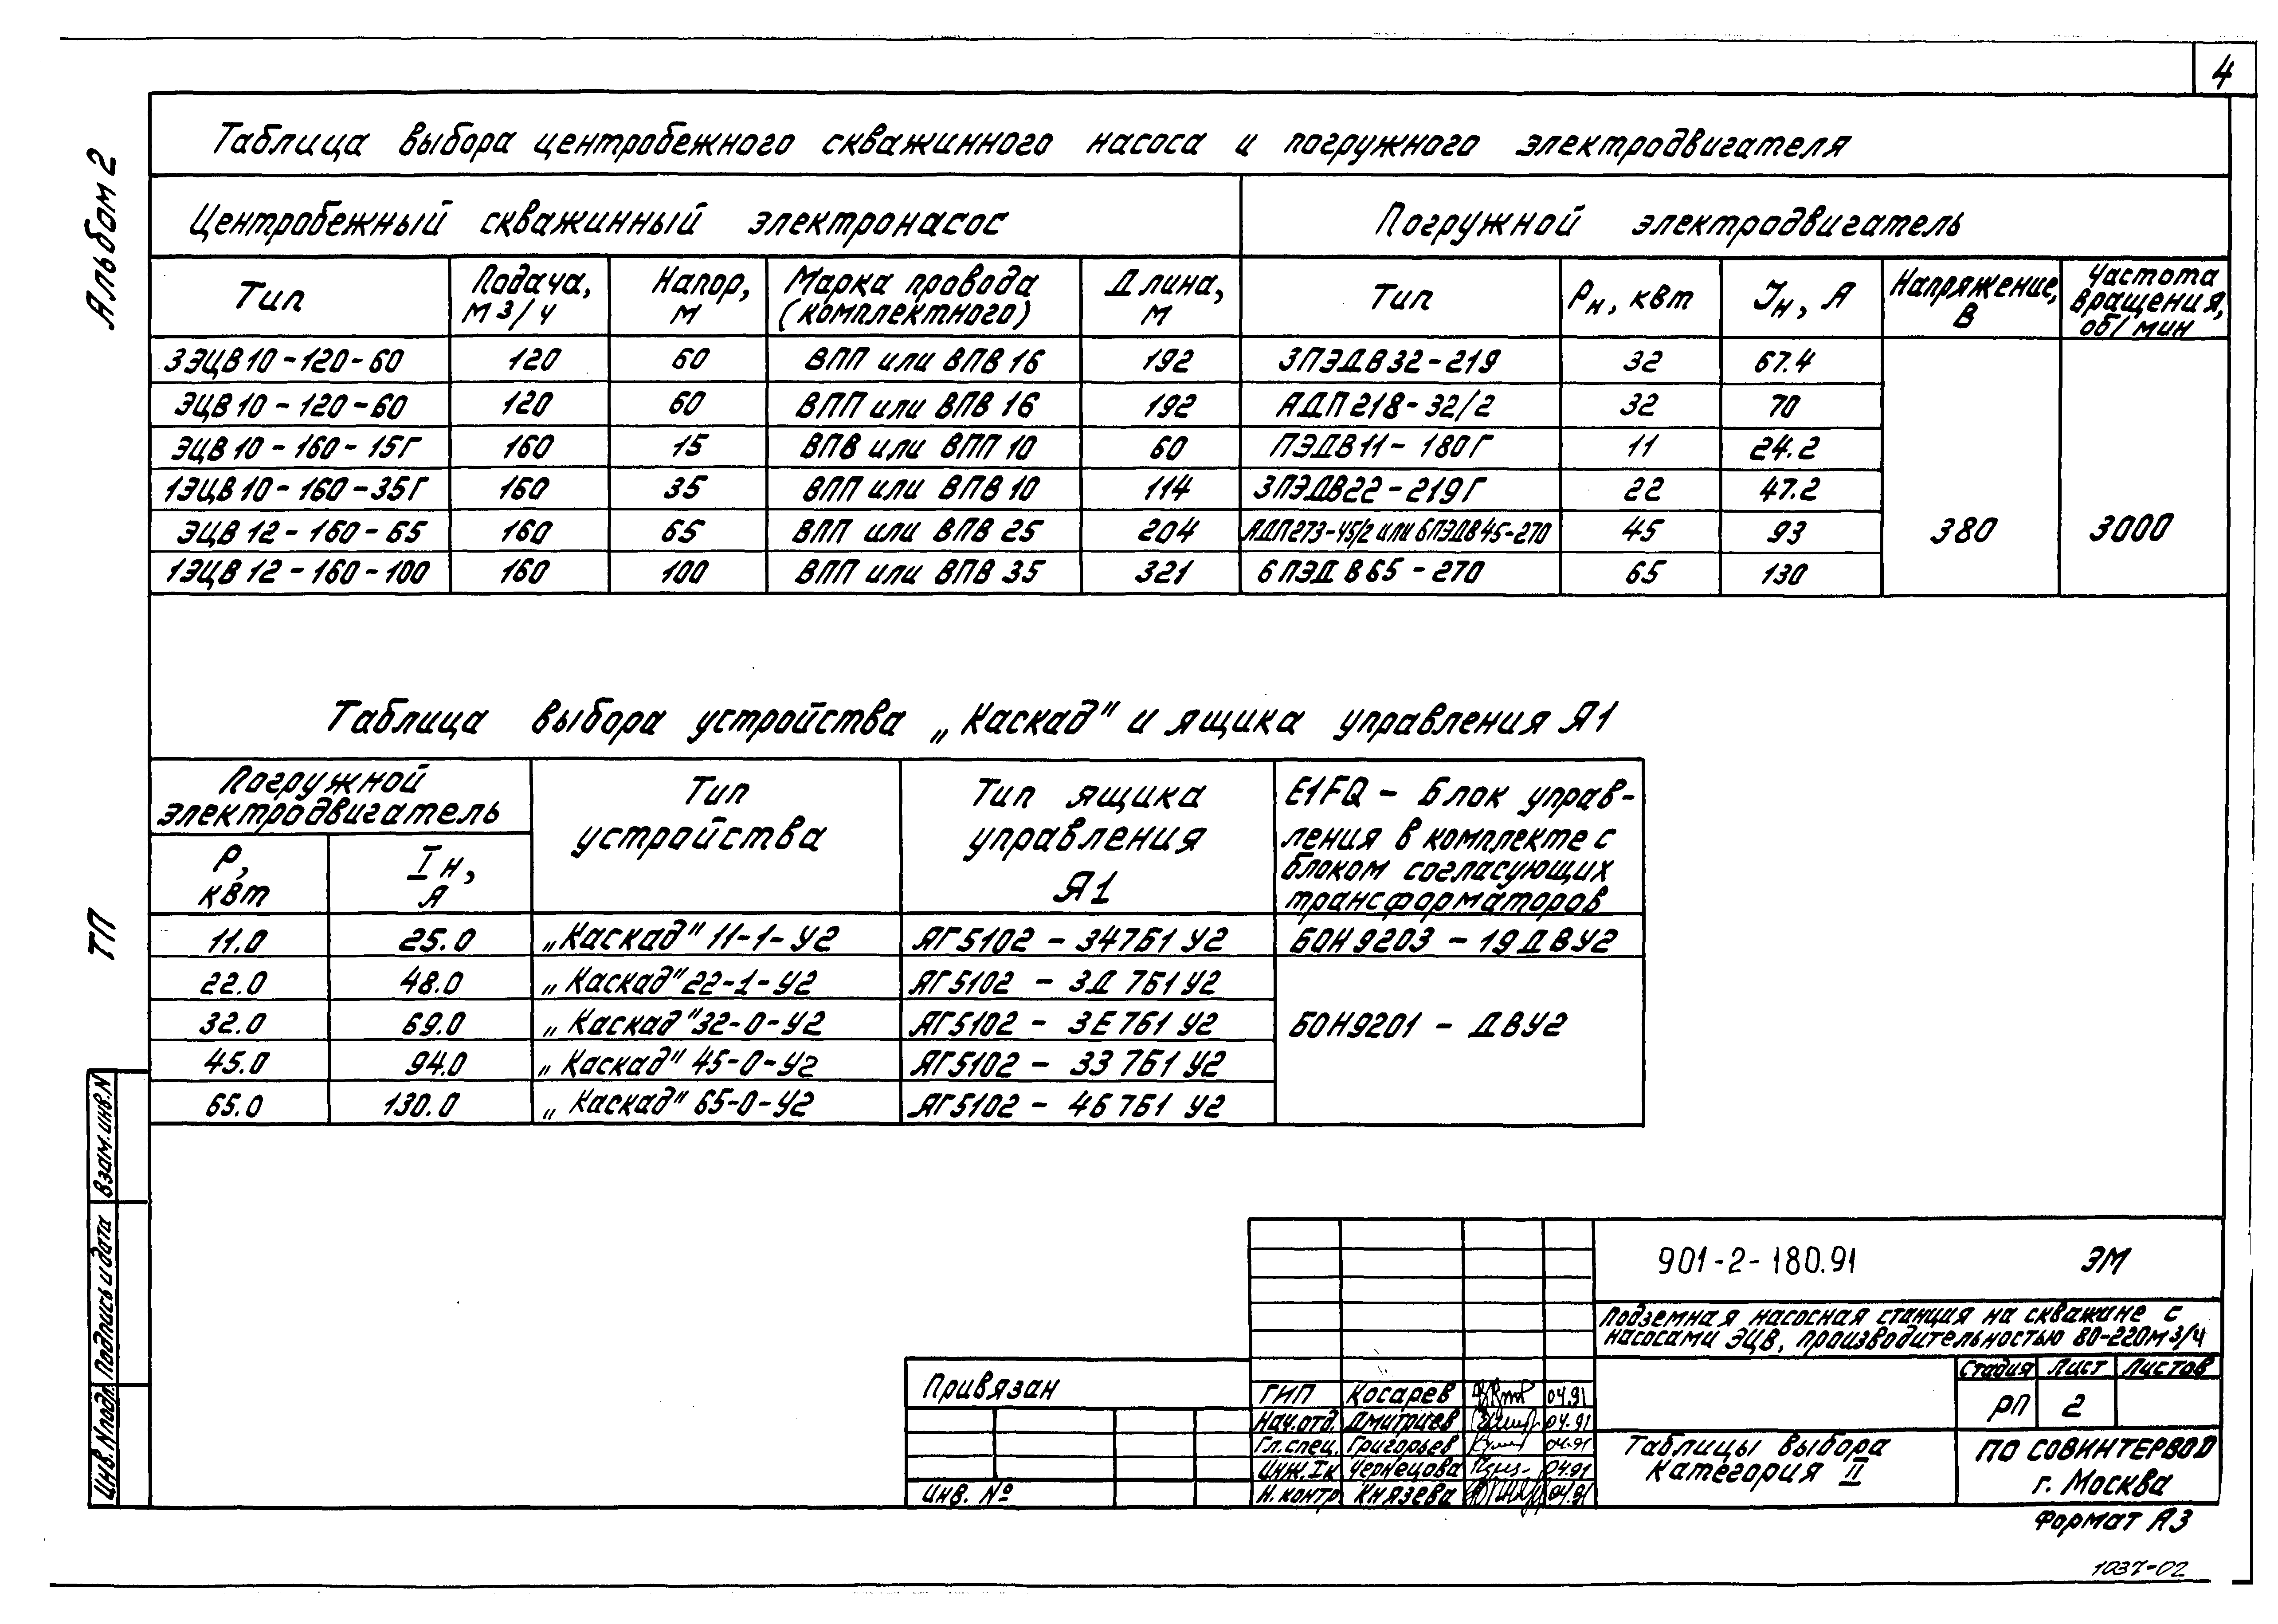 4
Альбом 2
Таблица выбора центробежного скважинного насоса и погружного электродвигателя
Центробежный скважинный электронасос Погружной электродвигатель
Тип Подача, м3/ч Напор, м Марка провода (комплектного) Длина, м Тип Рн, квт Jн, А Напряжение, В Частота вращения, об/мин
3ЭЦВ10-120-60 120 60 ВПП или ВПВ 16 192 3ПЭДВ32-219 32 67.4
ЭЦВ10-120-60 120 60 ВПП или ВПВ 16 192 АДП218-32/2 32 70
ЭЦВ10-160-15Г 160 15 ВПВ или ВПП 10 60 ПЭДВ11-180Г 11 24.2
1ЭЦВ10-160-35Г 160 35 ВПП или ВПВ 10 114 3ПЭДВ22-219Г 22 47.2
ЭЦВ12-160-65 160 65 ВПП или ВПВ 25 204 АДП273-45/2 или 6ПЭДВ45-270 45 93 380 3000
1ЭЦВ12-160-100 160 100 ВПП или ВПВ 35 321 6ПЭДВ65-270 65 130
Таблица выбора устройства „Каскад" и ящика управления Я1
Погружной электродвигатель
Тип устройства
Тип ящика управления Я1
E1FQ - Блок управ-
ления в комплекте с
блоком согласующих
трансформаторов
Р, квт Iн, А
11.0 25.0 „Каскад" 11-1-У2 ЯГ5102-347Б1У2 БОН9203-19ДВУ2
22.0 48.0 „Каскад" 22-1-У2 ЯГ5102-3Д7Б1У2
32.0 69.0 „Каскад" 32-0-У2 ЯГ5102-3Е7Б1У2 БОН9201-ДВУ2
45.0 94.0 „Каскад" 45-0-У2 ЯГ5102-337Б1У2
65.0 130.0 „Каскад" 65-0-У2 ЯГ5102-4Б7Б1У2
ТП
Взам.инв.N
Подпись и дата
Инв.Nподл.
901-2-180.91 ЭМ
Подземная насосная станция на скважине с
насосами ЭЦВ, производительностью 80-220м3/ч
Стадия Лист Листов
РП 2
Таблицы выбора
Категория II
ПО СОВИНТЕРВОД
г. Москва
Привязан
Инв. №
ГИП Косарев 04.91
Нач.отд. Дмитриев 04.91
Гл.спец. Григорьев 04.91
Инж.Iк Чернецова 04.91
Н.контр Князева 04.91
Формат А3
1037-02